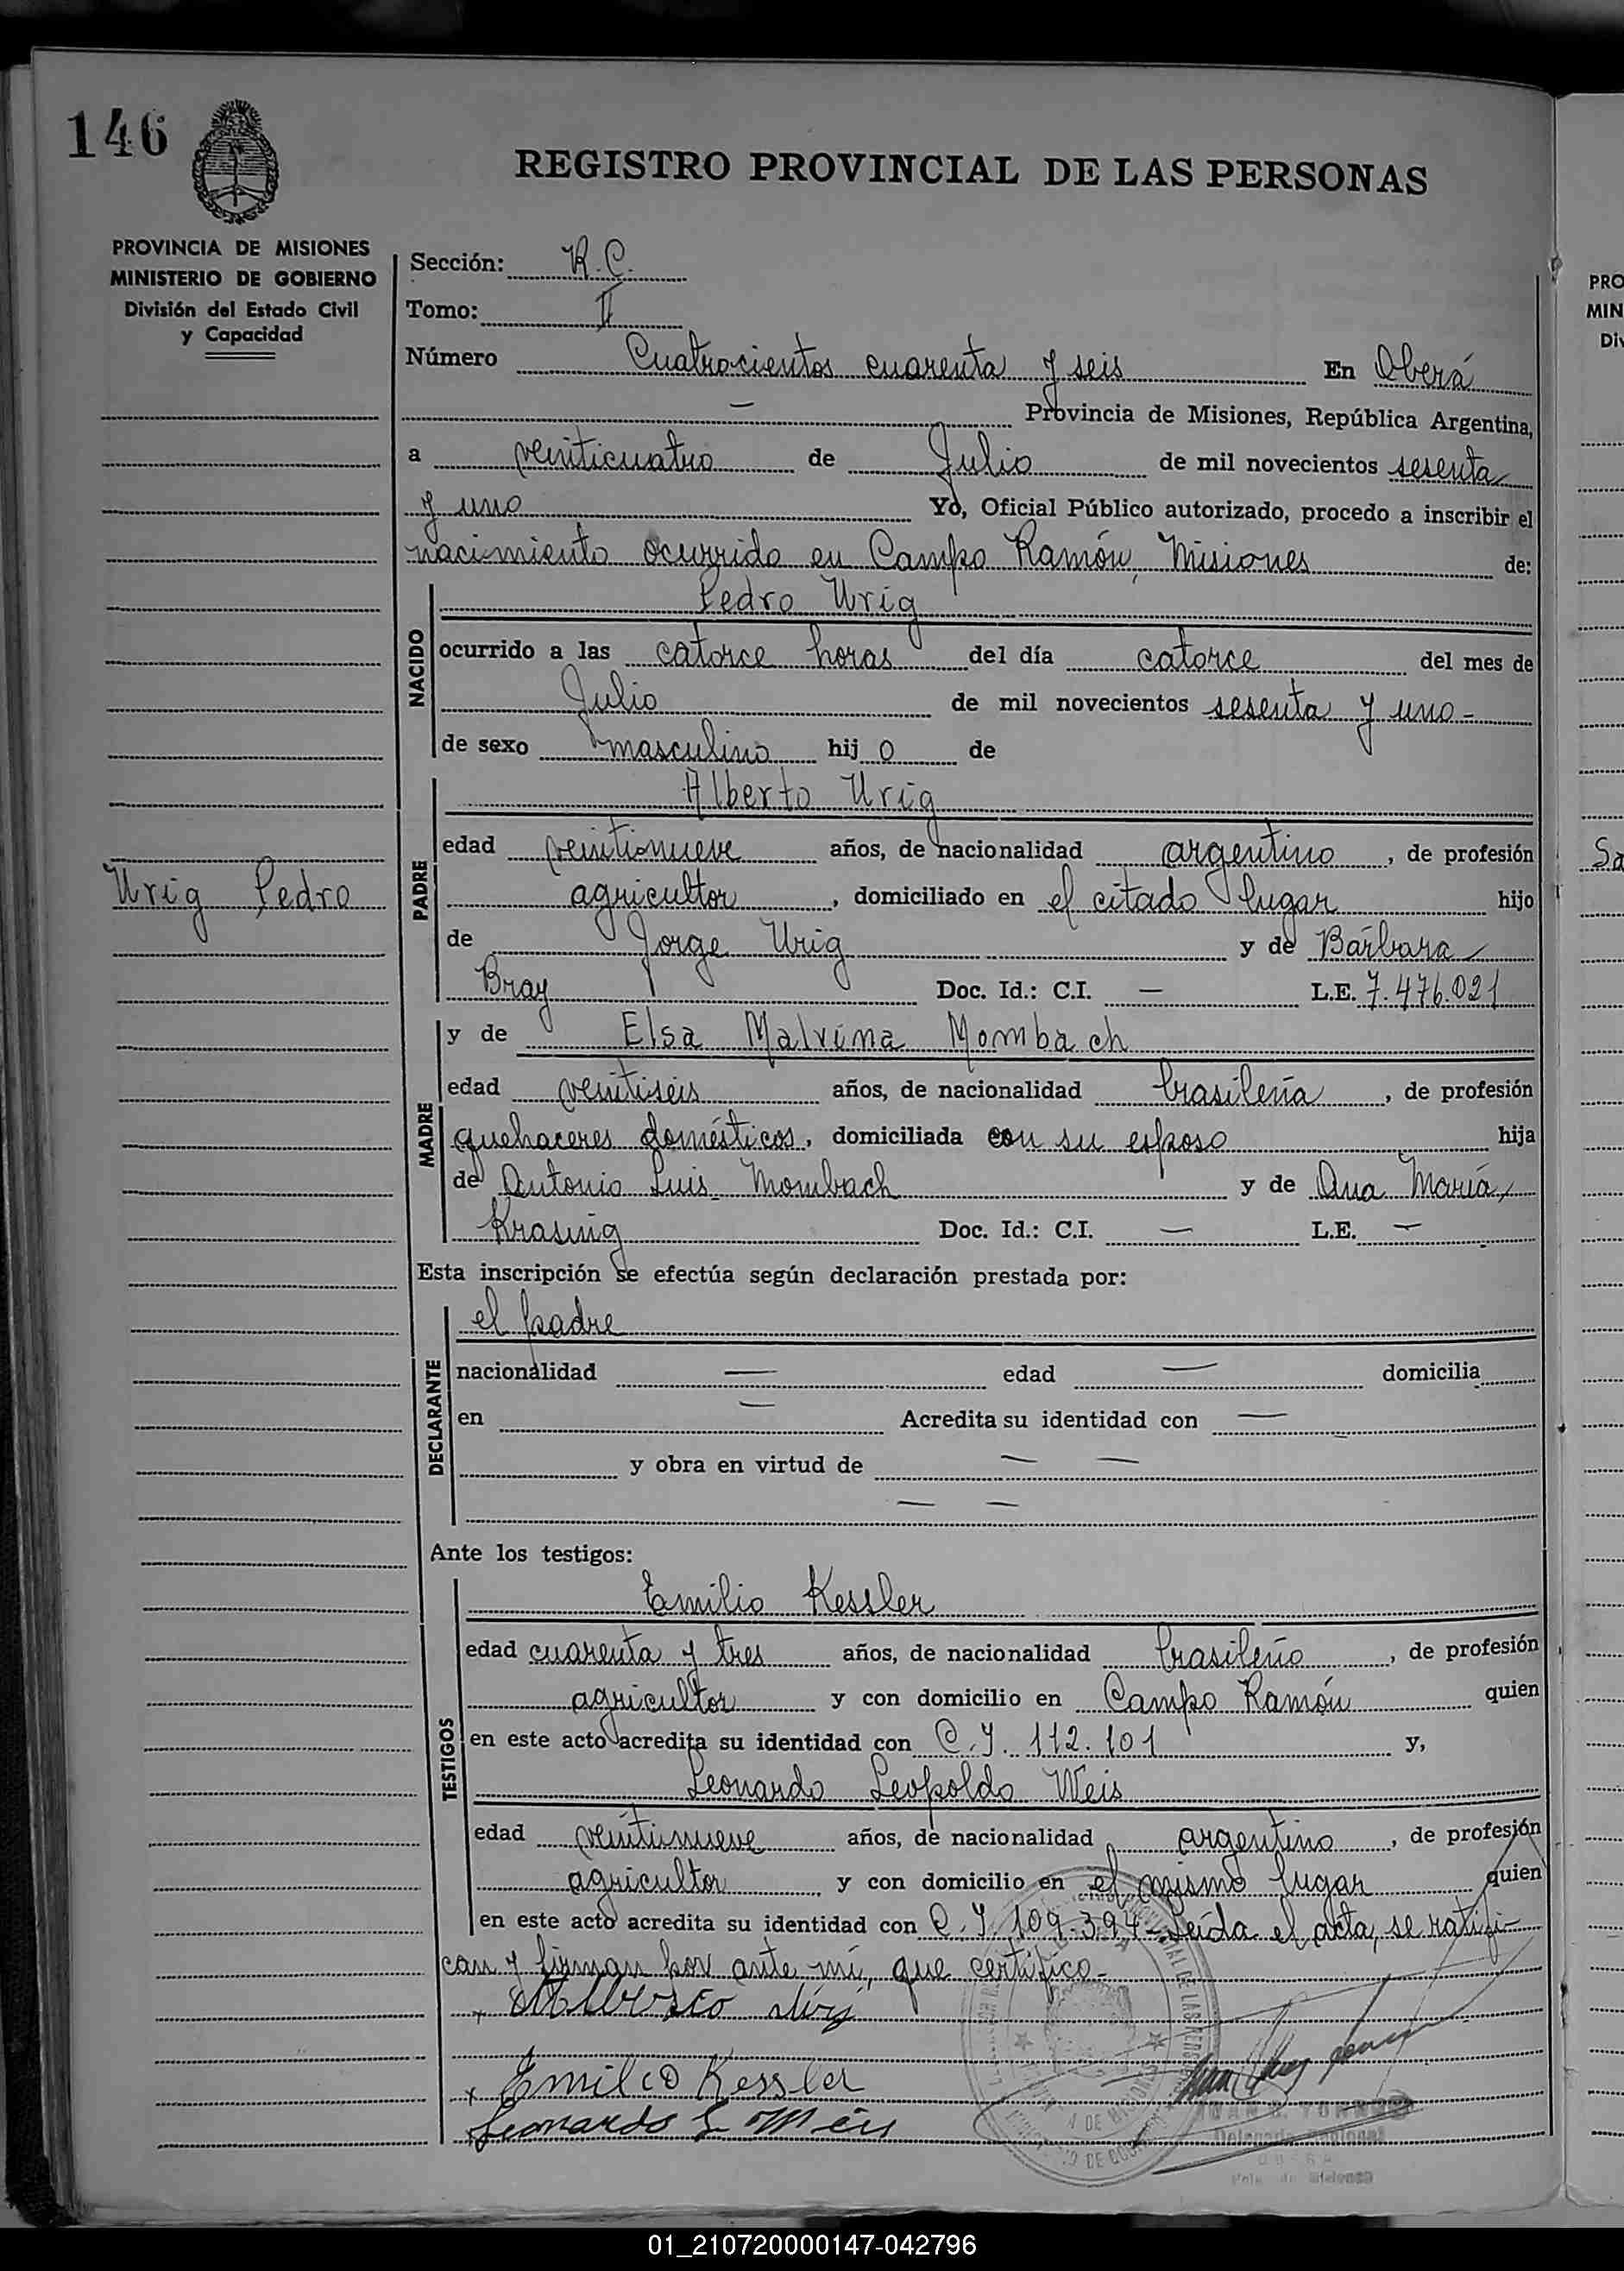 146
REGISTRO PROVINCIAL DE LAS PERSONAS
PROVINCIA DE MISIONES
MINISTERIO DE GOBIERNO
División del Estado Civil
y Capacidad
Sección: R.C.
Tomo: II
Número Cuatrocientos cuarenta y seis En Oberá
— Provincia de Misiones, República Argentina,
a veinticuatro de Julio de mil novecientos sesenta
y uno Yo, Oficial Público autorizado, procedo a inscribir el
nacimiento ocurrido en Campo Ramón, Misiones de:
NACIDO
Pedro Urig
ocurrido a las catorce horas del día catorce del mes de
Julio de mil novecientos sesenta y uno-
de sexo masculino hij o de
PADRE
Alberto Urig
edad veintinueve años, de nacionalidad argentino, de profesión
Urig Pedro
agricultor, domiciliado en el citado lugar hijo
de Jorge Urig y de Bárbara
Bray Doc. Id.: C.I. — L.E. 7.476.021
MADRE
y de Elsa Malvina Mombach
edad veintiseis años, de nacionalidad brasileña, de profesión
quehaceres domésticos, domiciliada con su esposo hija
de Antonio Luis Mombach y de Ana María
Krasnig Doc. Id.: C.I. — L.E. —
Esta inscripción se efectúa según declaración prestada por:
DECLARANTE
el padre
nacionalidad — edad — domicilia
en — Acredita su identidad con —
y obra en virtud de — —
— —
Ante los testigos:
TESTIGOS
Emilio Kessler
edad cuarenta y tres años, de nacionalidad brasileño, de profesión
agricultor y con domicilio en Campo Ramón quien
en este acto acredita su identidad con C.I. 112.101 y,
Leonardo Leopoldo Weis
edad veintinueve años, de nacionalidad argentino, de profesión
agricultor y con domicilio en el mismo lugar quien
en este acto acredita su identidad con C.I. 109.394- Leída el acta, se ratifi-
can y firman por ante mí, que certifico-
x Alberto Urig
x Emilio Kessler
x Leonardo L Weis
Delegado Regional
PRO
MIN
Div
Sa
01_210720000147-042796